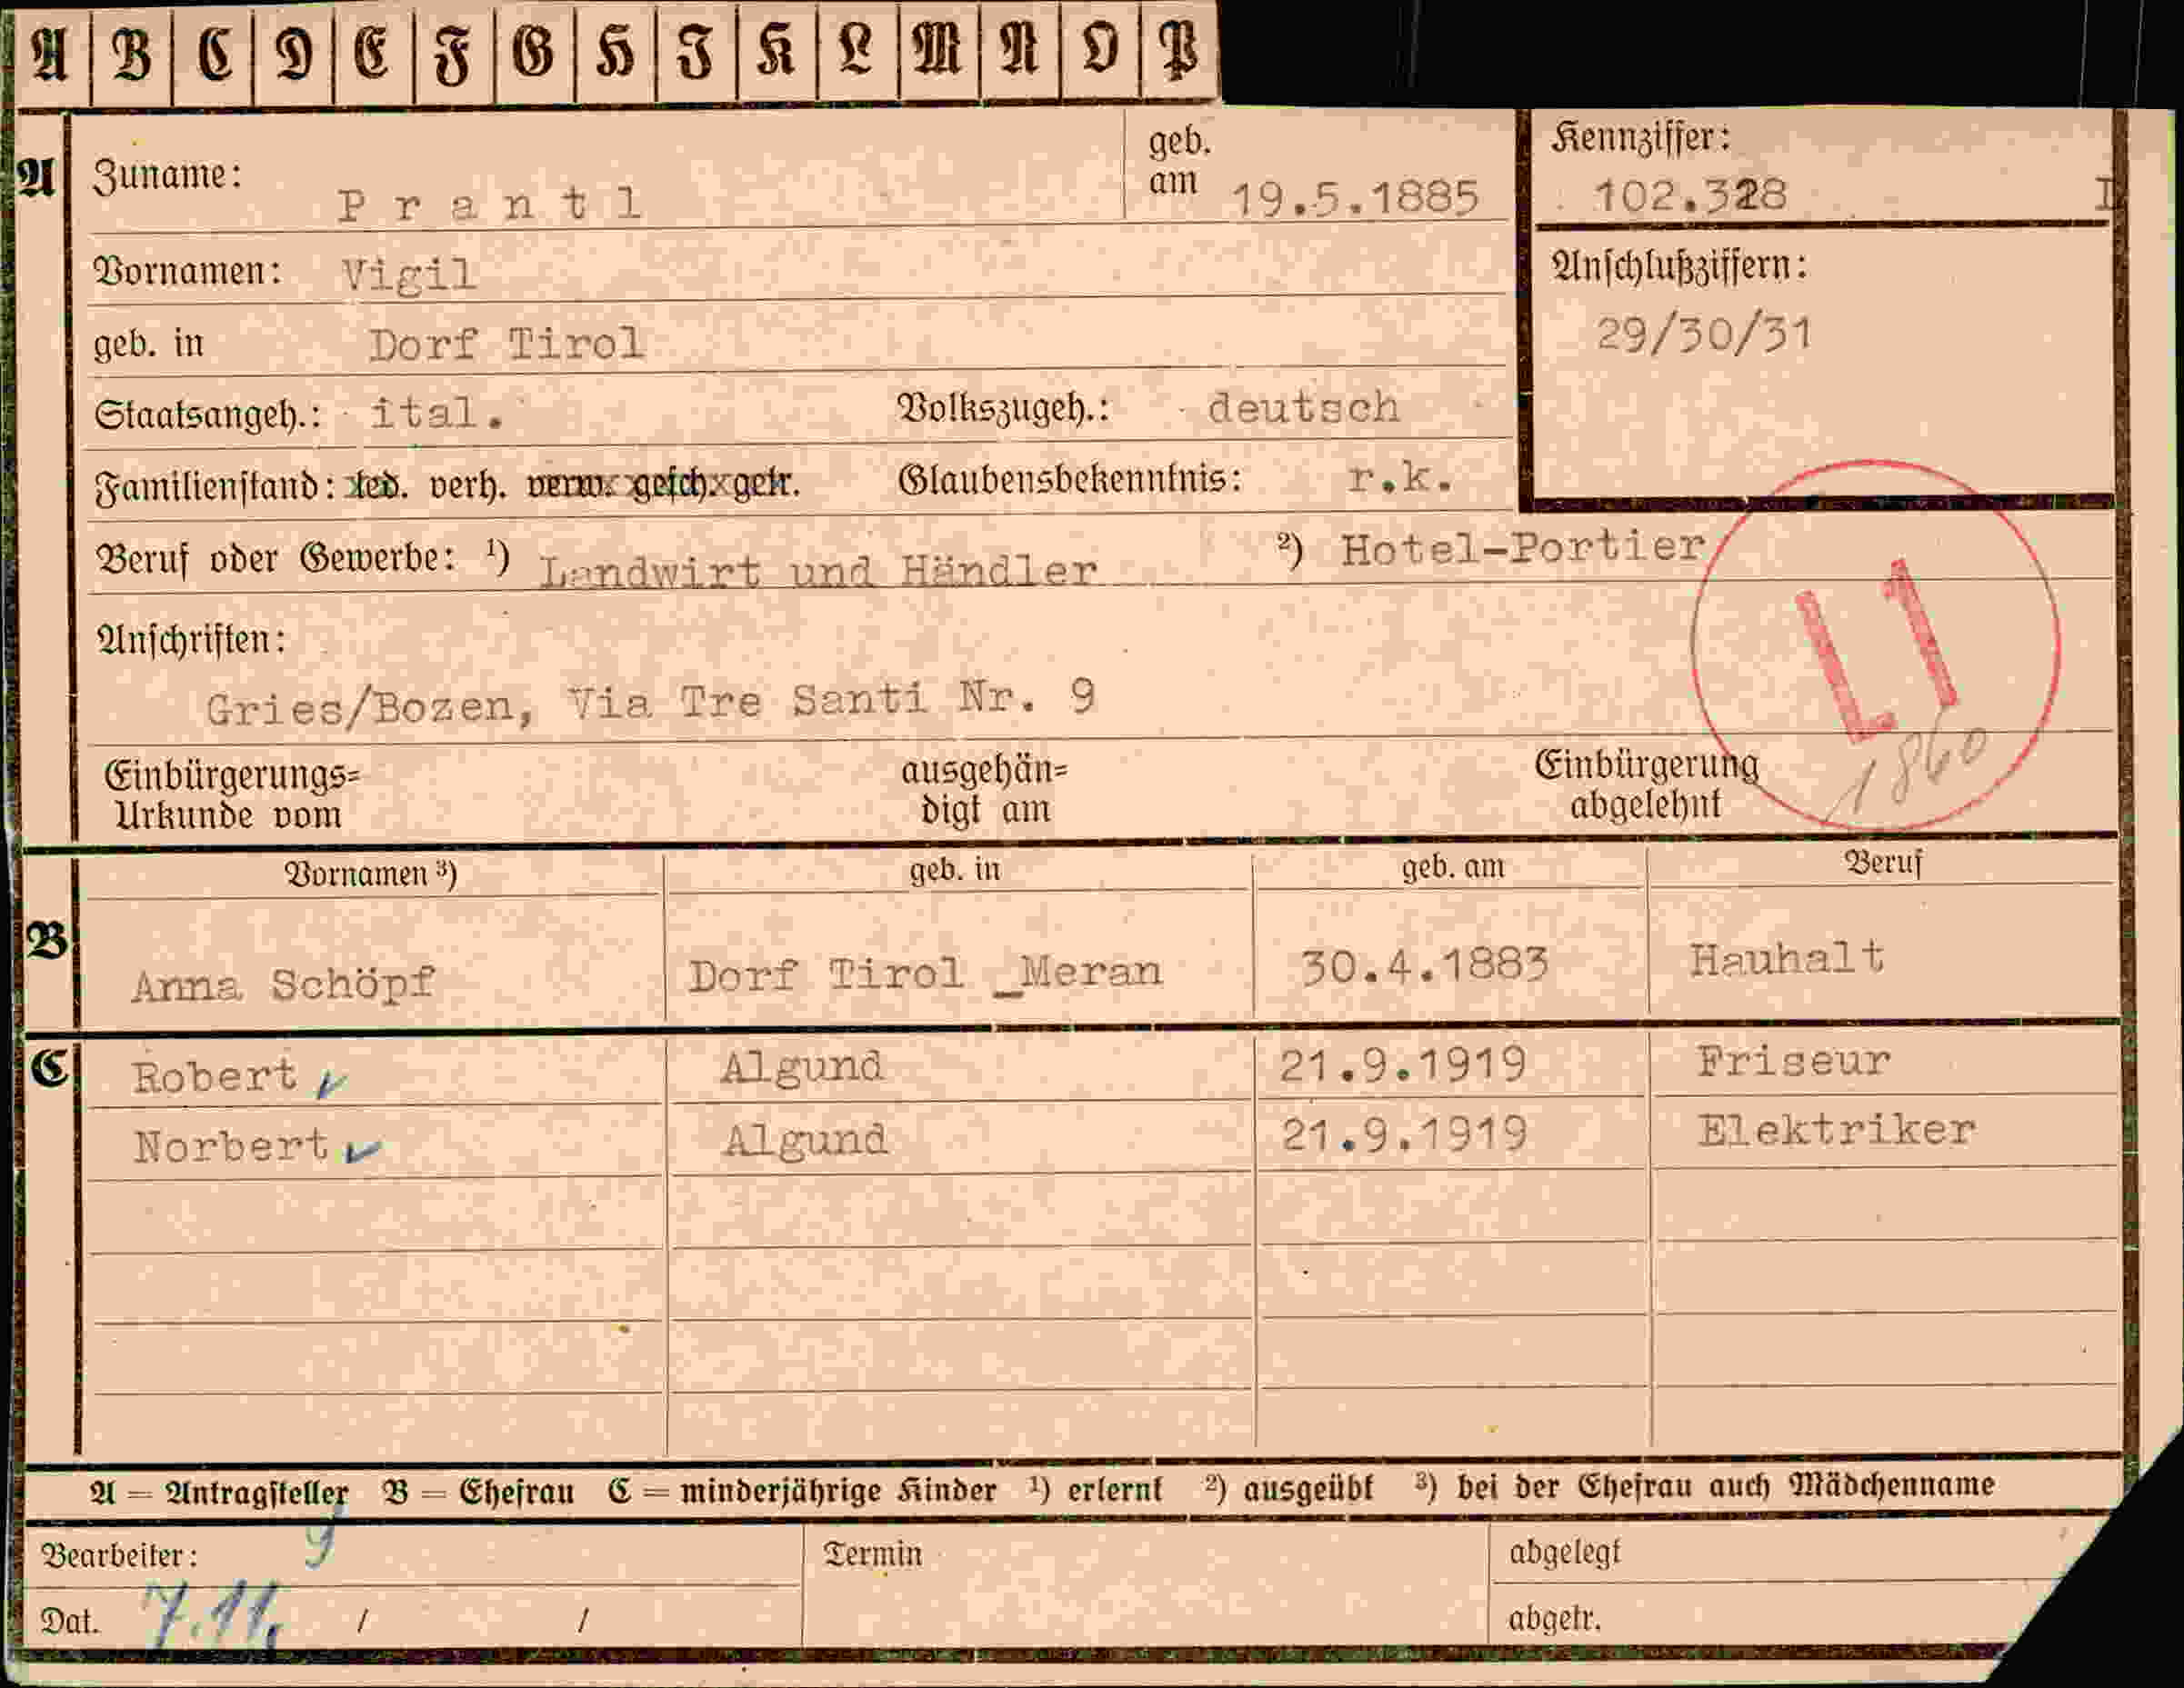 A B C D E F G H I K L M N O P
A Zuname: Prantl geb. am 19.5.1885
Kennziffer: 102.328 I
Vornamen: Vigil
Anschlußziffern:
29/30/31
geb. in Dorf Tirol
Staatsangeh.: ital. Volkszugeh.: deutsch
Familienstand: led. verh. verw. gesch. getr. Glaubensbekenntnis: r.k.
Beruf oder Gewerbe: ¹) Landwirt und Händler ²) Hotel-Portier
Anschriften:
L1
Gries/Bozen, Via Tre Santi Nr. 9
1860
Einbürgerungs= Urkunde vom ausgehän= digt am Einbürgerung abgelehnt
Vornamen ³) geb. in geb. am Beruf
B Anna Schöpf Dorf Tirol _Meran 30.4.1883 Hauhalt
C Robert Algund 21.9.1919 Friseur
Norbert Algund 21.9.1919 Elektriker
A = Antragsteller B = Ehefrau C = minderjährige Kinder ¹) erlernt ²) ausgeübt ³) bei der Ehefrau auch Mädchenname
Bearbeiter: Termin abgelegt
Dat. 7.11. / / abgetr.